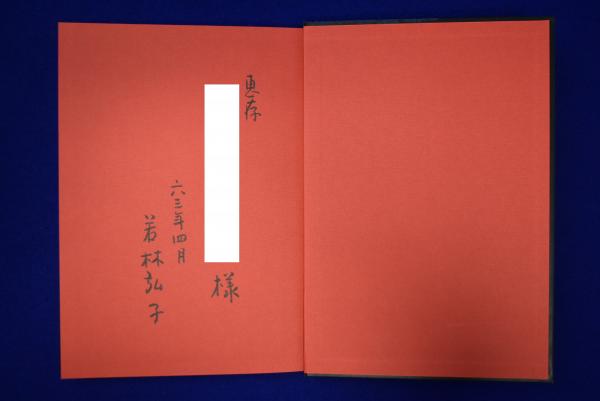 恵存
様
六三年四月
若林弘子